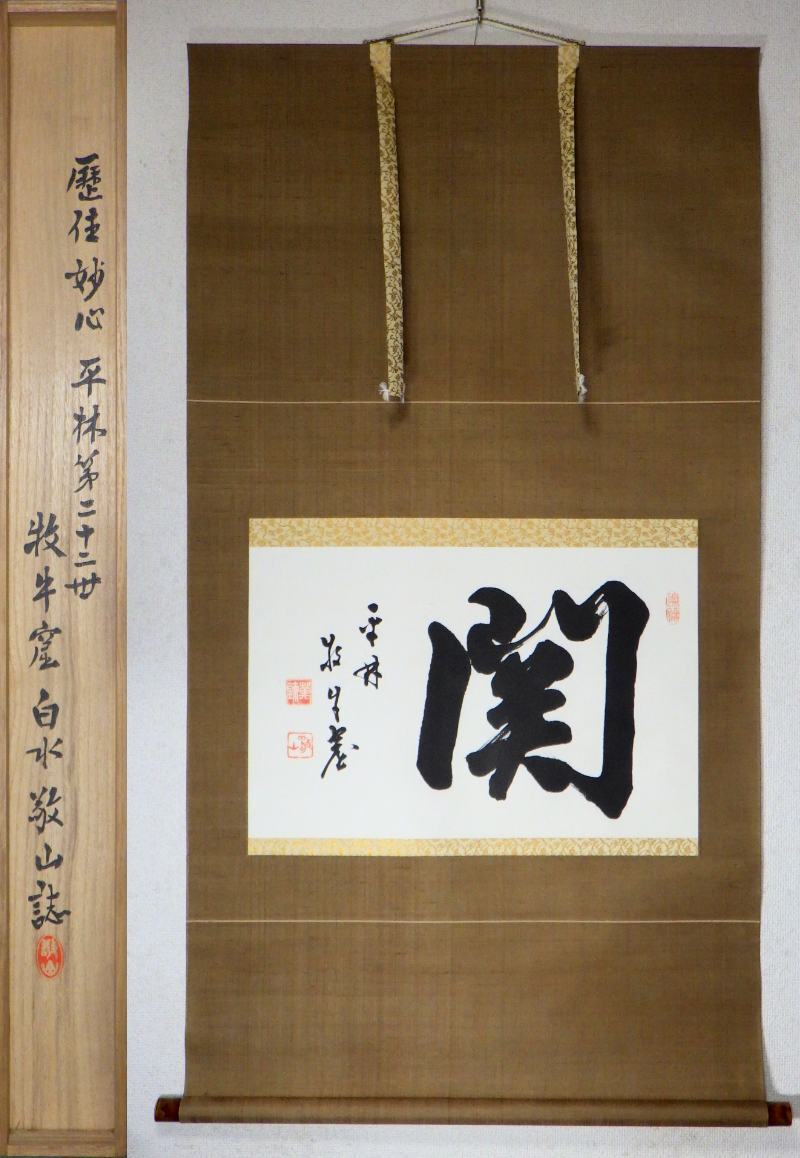 歴住妙心 平林第二十二世
牧牛窟 白水敬山誌
敬山
関
平林
牧牛窟